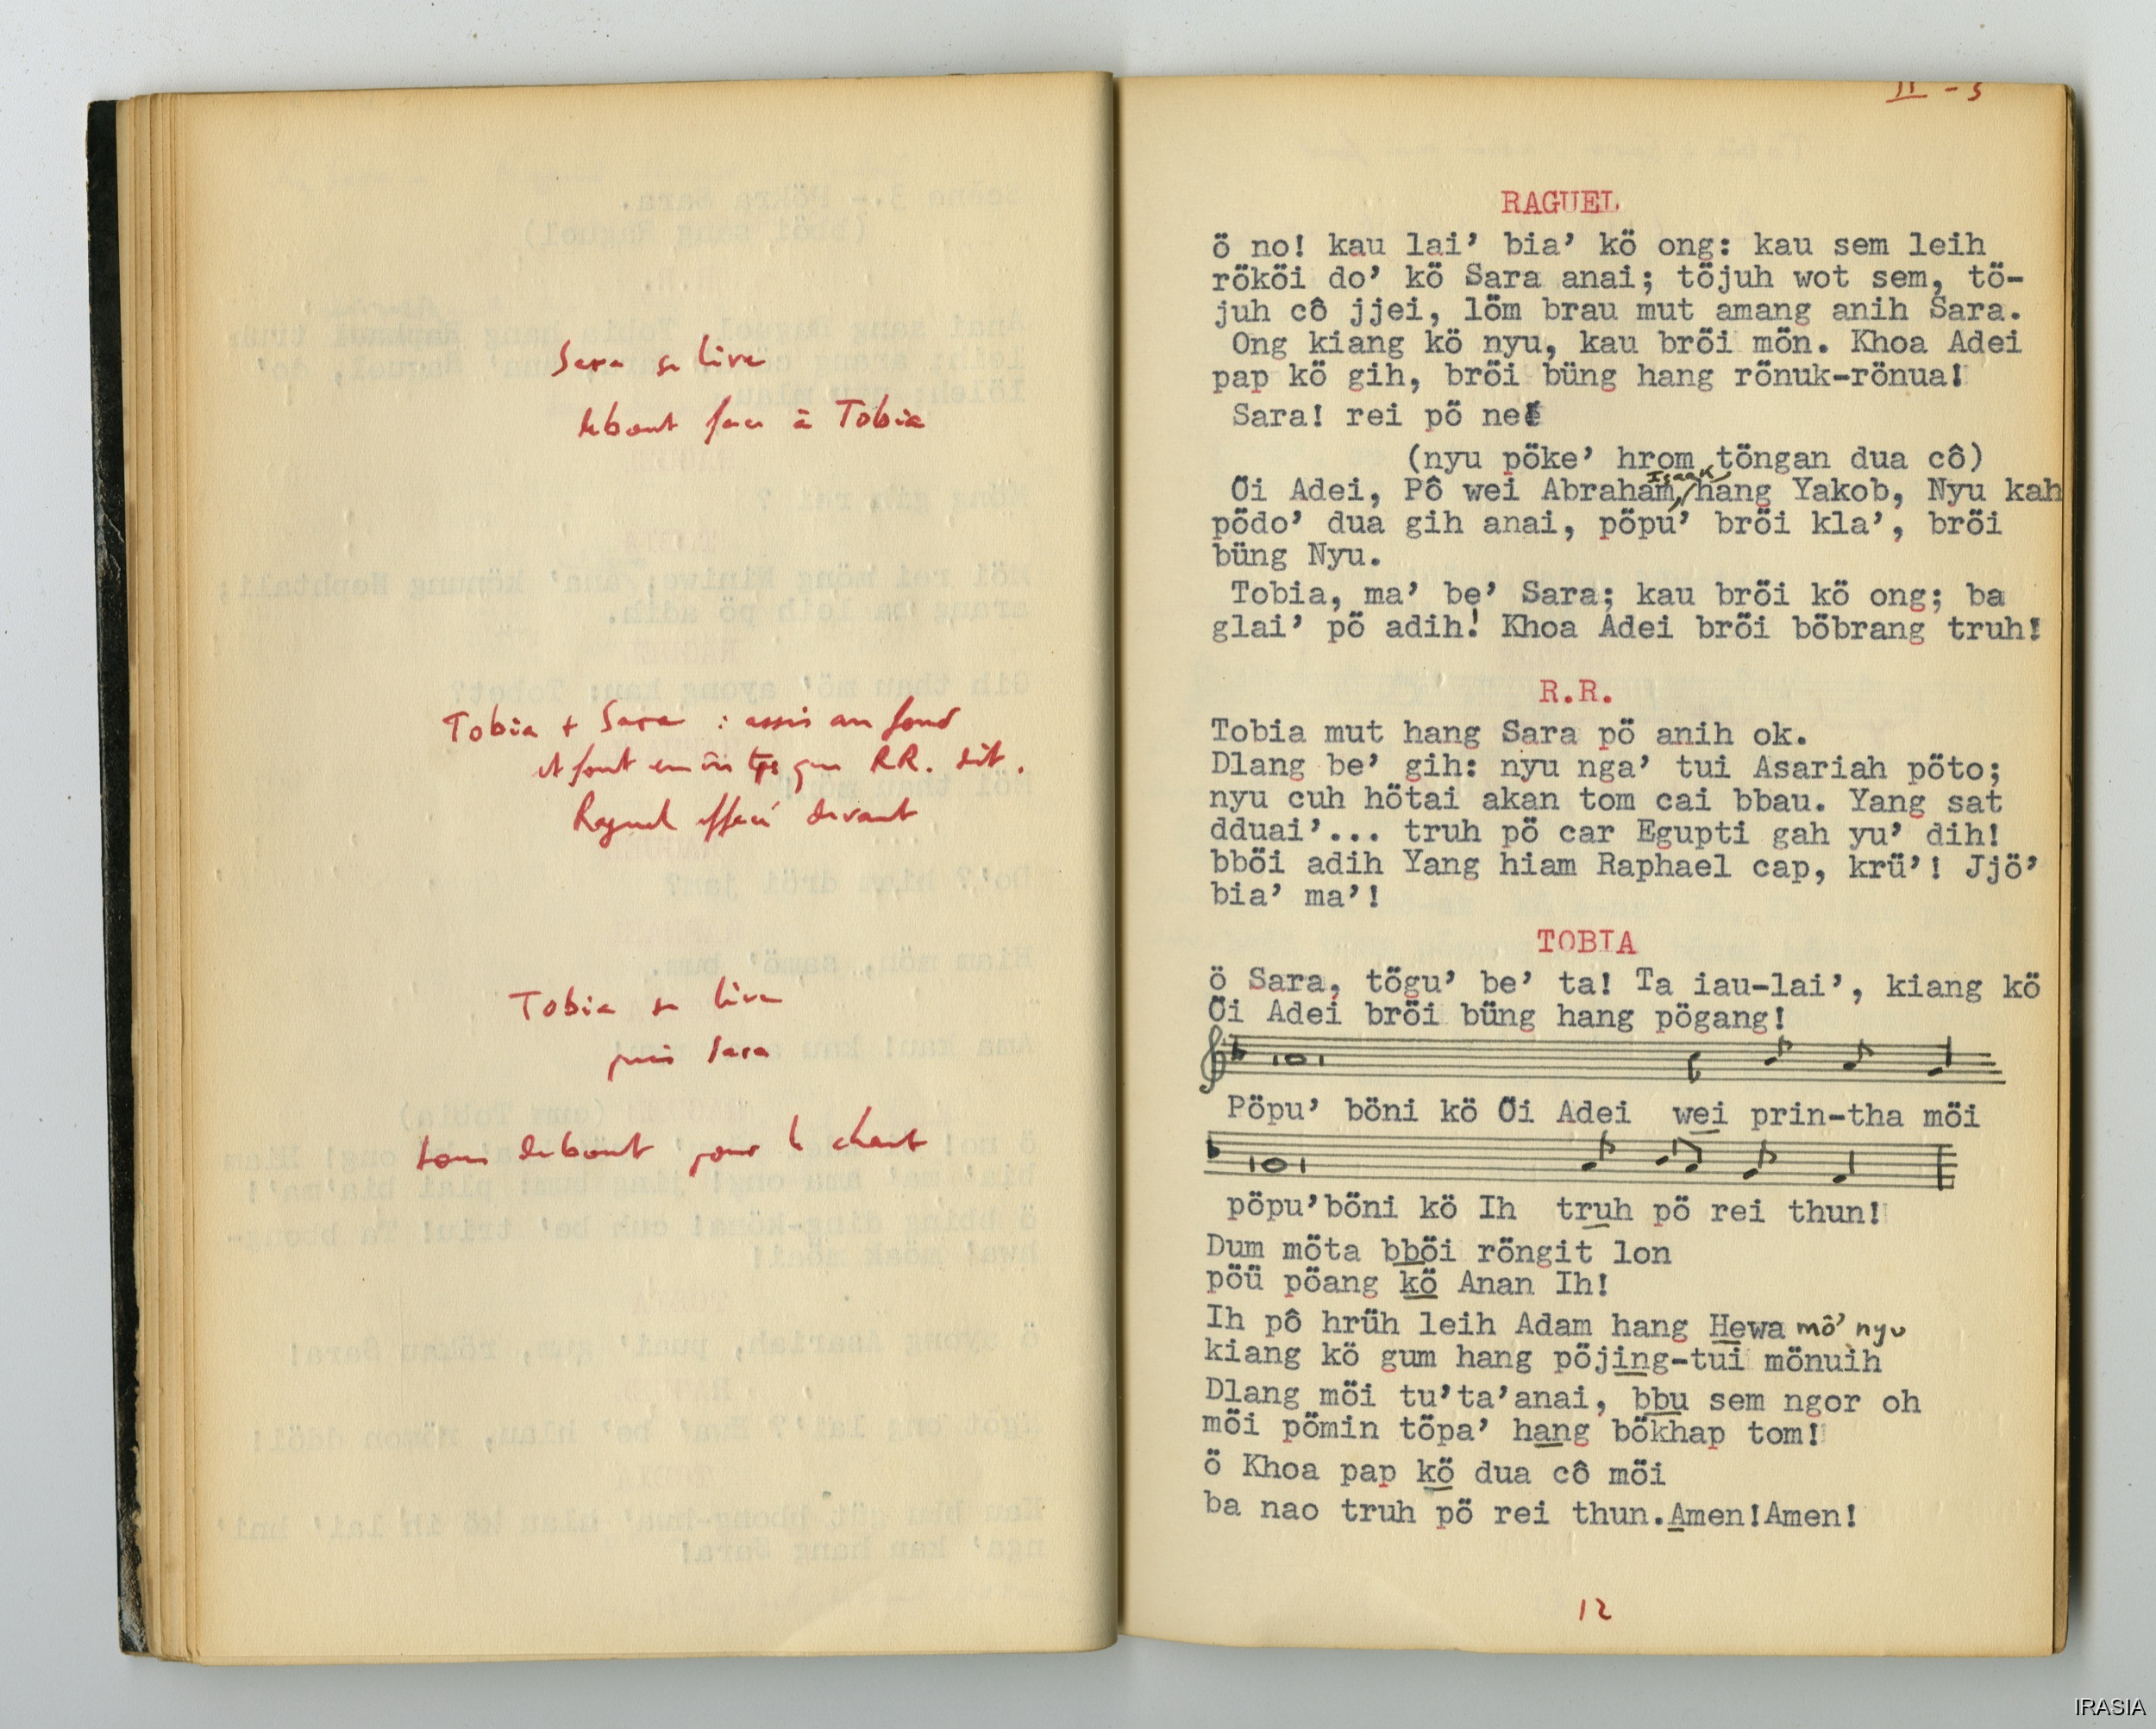 Sara se lève
debout face à Tobia
Tobia + Sara : assis au fond
et font ce que RR. dit.
Raguel effacé devant
Tobia se lève
puis Sara
tous debout pour le chant
II - 3
RAGUEL
ö no! kau lai’ bia’ kö ong: kau sem leih
rököi do’ kö Sara anai; töjuh wot sem, tö-
juh cô jjei, löm brau mut amang anih Sara.
Ong kiang kö nyu, kau bröi mön. Khoa Adei
pap kö gih, bröi büng hang rönuk-rönua!
Sara! rei pö ne!
(nyu pöke’ hrom töngan dua cô)
Isaak
Öi Adei, Pô wei Abraham, hang Yakob, Nyu kah
pödo’ dua gih anai, pöpu’ bröi kla’, bröi
büng Nyu.
Tobia, ma’ be’ Sara; kau bröi kö ong; ba
glai’ pö adih! Khoa Adei bröi böbrang truh!
R.R.
Tobia mut hang Sara pö anih ok.
Dlang be’ gih: nyu nga’ tui Asariah pöto;
nyu cuh hötai akan tom cai bbau. Yang sat
dduai’... truh pö car Egupti gah yu’ dih!
bböi adih Yang hiam Raphael cap, krü’! Jjö’
bia’ ma’!
TOBIA
ö Sara, tögu’ be’ ta! Ta iau-lai’, kiang kö
Öi Adei bröi büng hang pögang!
Pöpu’ böni kö Öi Adei wei prin-tha möi
pöpu’böni kö Ih truh pö rei thun!
Dum möta bböi röngit lon
pöü pöang kö Anan Ih!
Ih pô hrüh leih Adam hang Hewa mö’ nyu
kiang kö gum hang pöjing-tui mönuih
Dlang möi tu’ta’anai, bbu sem ngor oh
möi pömin töpa’ hang bökhap tom!
ö Khoa pap kö dua cô möi
ba nao truh pö rei thun.Amen!Amen!
12
IRASIA